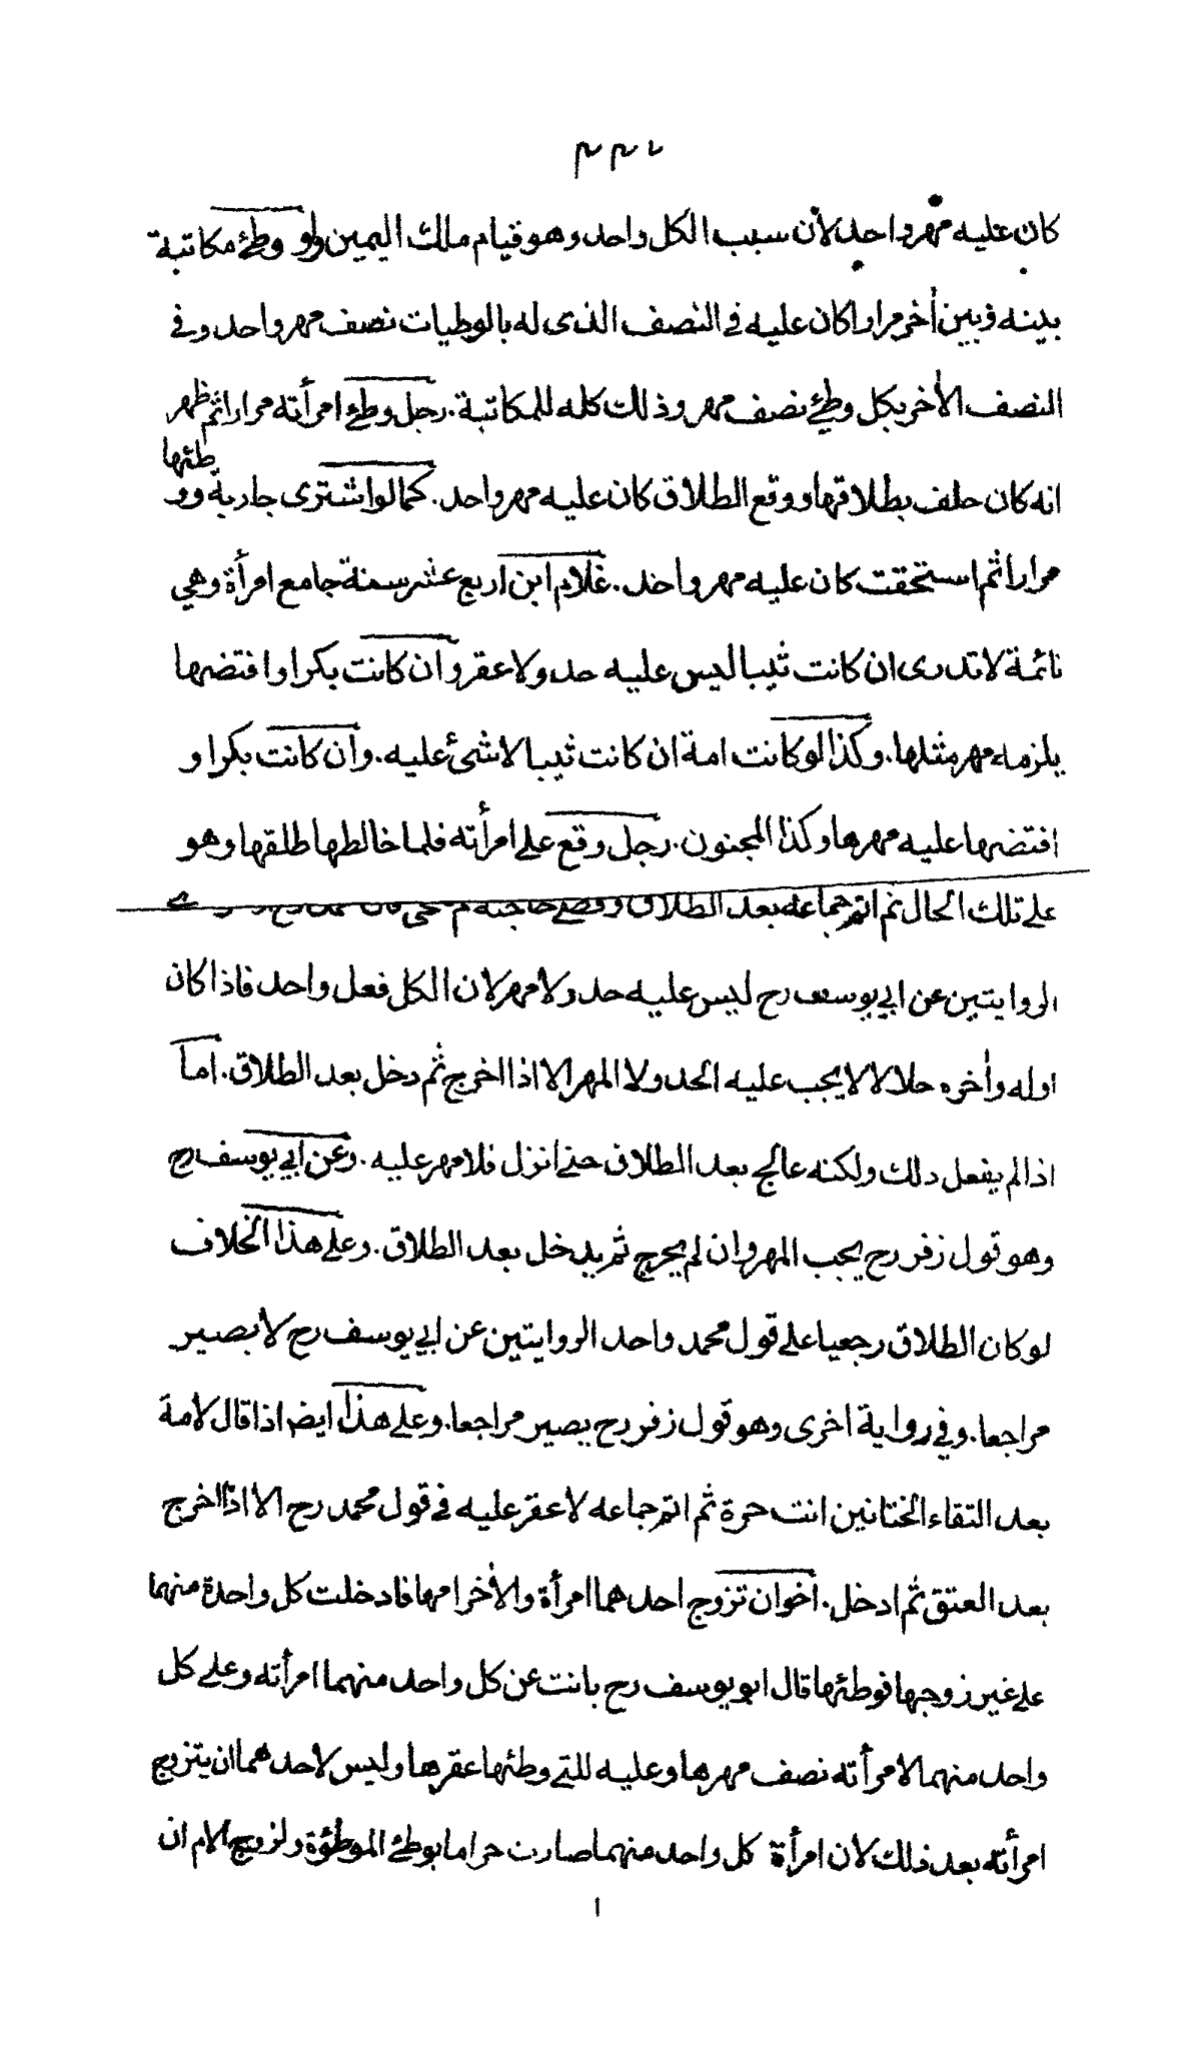 ٢٢٢
كان عليه مهر واحد لأن سبب الكل واحد وهو قيام ملك اليمين ولو وطئ مكاتبة
بينه وبين أخر مرارا كان عليه في النصف الذى له بالوطيات نصف مهر واحد وفى
النصف الأخر بكل وطئ نصف مهر وذلك كله للمكاتبة. رجل وطئ امرأته مرارا ثم ظهر
انه كان حلف بطلاقها ووقع الطلاق كان عليه مهر واحد. كما لو اشترى جارية ووطئها
مرارا ثم استحقت كان عليه مهر واحد. غلام ابن اربع عشر سنة جامع امرأة وهي
نائمة لا تدرى ان كانت ثيبا ليس عليه حد ولا عقر وان كانت بكرا وافتضها
يلزمه مهر مثلها. وكذا لو كانت امة ان كانت ثيبا لا شئ عليه. وان كانت بكرا و
افتضها عليه مهرها وكذا المجنون. رجل وقع على امرأته فلما خالطها طلقها وهو
على تلك الحال ثم اتم جماعه بعد الطلاق وقضى حاجته
الروايتين عن ابي يوسف رح ليس عليه حد ولا مهر لان الكل فعل واحد فاذا كان
اوله وأخره حلالا لا يجب عليه الحد ولا المهر الا اذا اخرج ثم دخل بعد الطلاق. اما
اذا لم يفعل ذلك ولكنه عالج بعد الطلاق حتى انزل فلا مهر عليه. وعن ابي يوسف رح
وهو قول زفر رح يجب المهر وان لم يخرج ثم يدخل بعد الطلاق. وعلى هذا الخلاف
لو كان الطلاق رجعيا على قول محمد واحد الروايتين عن ابي يوسف رح لا يصير
مراجعا. وفي رواية اخرى وهو قول زفر رح يصير مراجعا. وعلى هذا ايضا اذا قال لامة
بعد التقاء الختانين انت حرة ثم اتم جماعه لا عقر عليه في قول محمد رح الا اذا اخرج
بعد العتق ثم ادخل. اخوان تزوج احدهما امرأة والأخر امها فادخلت كل واحدة منهما
على غير زوجها فوطئها قال ابو يوسف رح بانت عن كل واحد منهما امرأته وعلى كل
واحد منهما لامرأته نصف مهرها وعليه للتى وطئها عقرها وليس لاحدهما ان يتزوج
امرأته بعد ذلك لان امرأة كل واحد منهما صارت حراما بوطئ الموطؤة ولزوج الام ان
ا